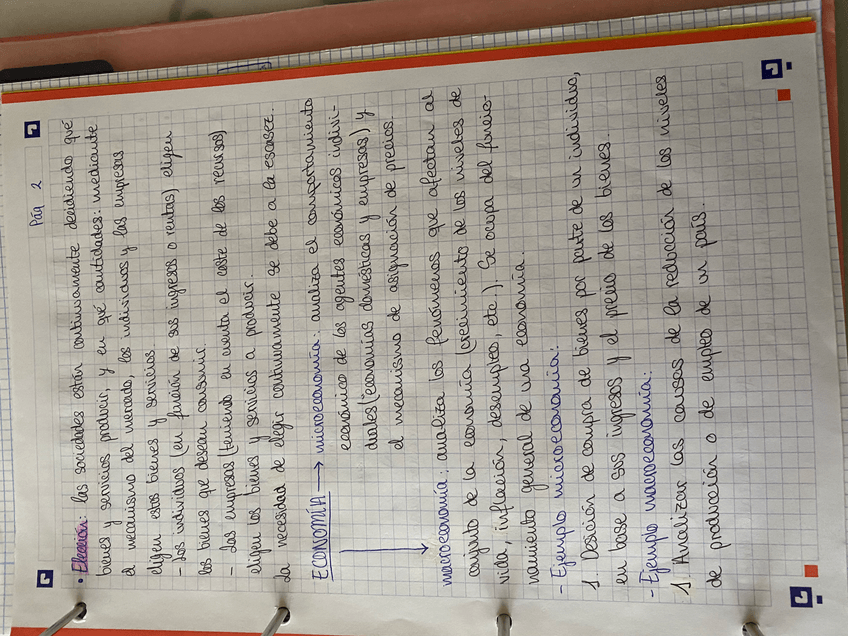 Pág 2
• Elección: las sociedades están continuamente decidiendo qué
bienes y servicios producir, y en qué cantidades: mediante
el mecanismo del mercado, los individuos y las empresas
eligen estos bienes y servicios.
- Los individuos (en función de sus ingresos o rentas) eligen
los bienes que desean consumir.
- Las empresas (teniendo en cuenta el coste de los recursos)
eligen los bienes y servicios a producir.
La necesidad de elegir continuamente se debe a la escasez.
ECONOMÍA → microeconomía: analiza el comportamiento
económico de los agentes económicos indivi-
duales (economías domésticas y empresas) y
el mecanismo de asignación de precios.
macroeconomía: analiza los fenómenos que afectan al
conjunto de la economía (crecimiento de los niveles de
vida, inflación, desempleo, etc.). Se ocupa del funcio-
namiento general de una economía.
- Ejemplo microeconomía:
1. Desición de compra de bienes por parte de un individuo,
en base a sus ingresos y el precio de los bienes.
- Ejemplo macroeconomía:
1. Analizar las causas de la reducción de los niveles
de producción o de empleo de un país.